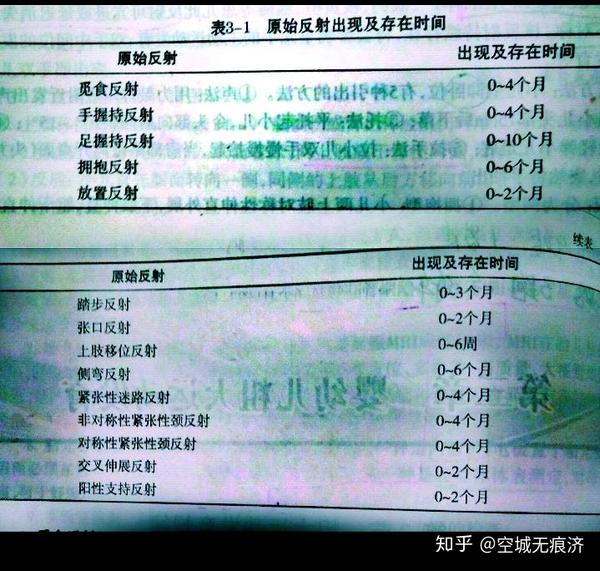 表3-1 原始反射出现及存在时间
原始反射 出现及存在时间
觅食反射 0~4个月
手握持反射 0~4个月
足握持反射 0~10个月
拥抱反射 0~6个月
放置反射 0~2个月
续表
原始反射 出现及存在时间
踏步反射 0~3个月
张口反射 0~2个月
上肢移位反射 0~6周
侧弯反射 0~6个月
紧张性迷路反射 0~4个月
非对称性紧张性颈反射 0~4个月
对称性紧张性颈反射 0~4个月
交叉伸展反射 0~2个月
阳性支持反射 0~2个月
知乎 @空城无痕济